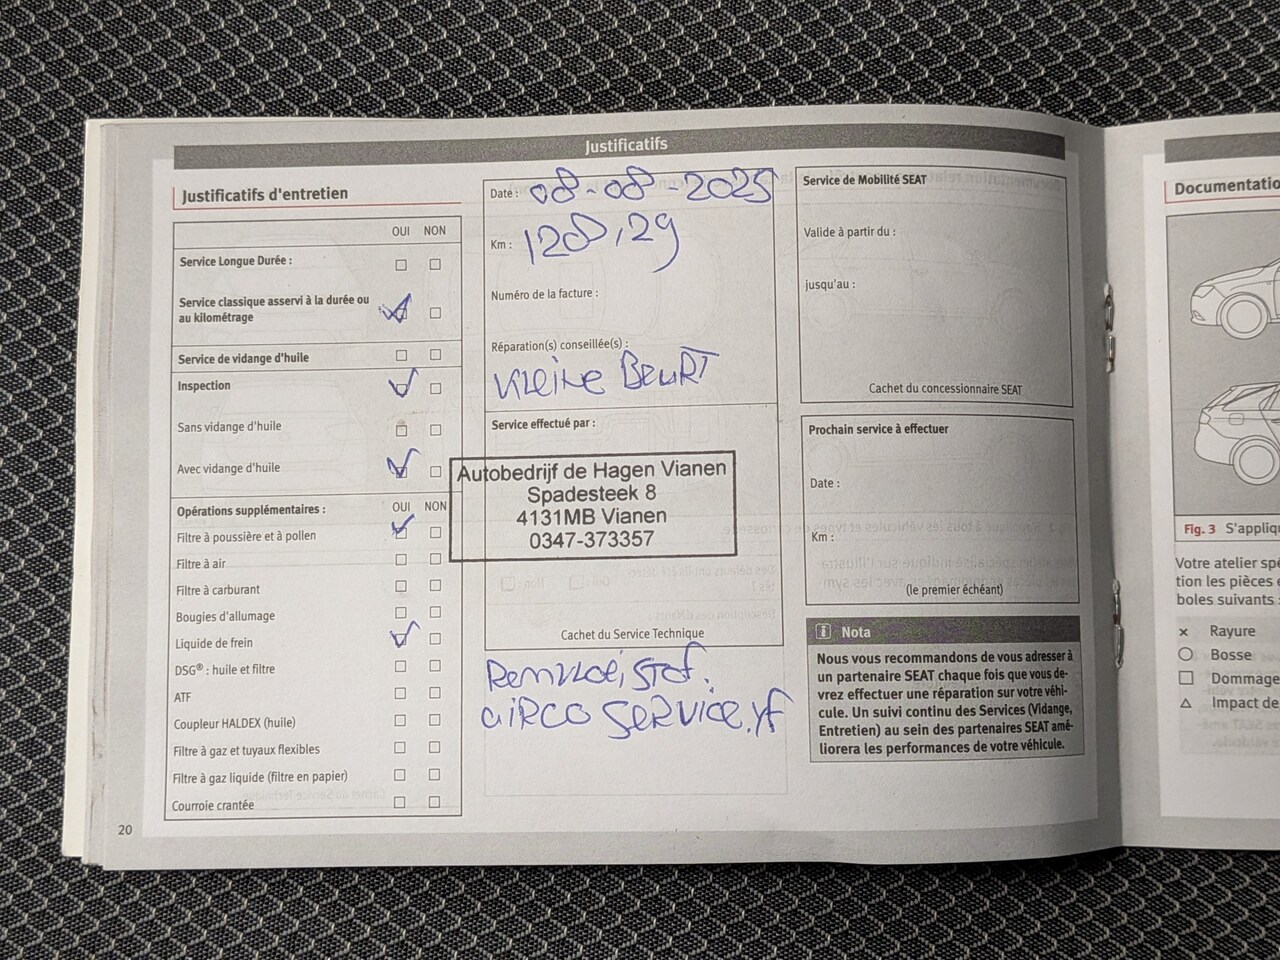 Justificatifs
Justificatifs d'entretien
OUI NON
Service Longue Durée :
Service classique asservi à la durée ou
au kilométrage
Service de vidange d'huile
Inspection
Sans vidange d'huile
Avec vidange d'huile
Opérations supplémentaires : OUI NON
Filtre à poussière et à pollen
Filtre à air
Filtre à carburant
Bougies d'allumage
Liquide de frein
DSG® : huile et filtre
ATF
Coupleur HALDEX (huile)
Filtre à gaz et tuyaux flexibles
Filtre à gaz liquide (filtre en papier)
Courroie crantée
20
Date : 08-08-2025
Km : 128,29
Numéro de la facture :
Réparation(s) conseillée(s) :
Kleine Beurt
Service effectué par :
Autobedrijf de Hagen Vianen
Spadesteek 8
4131MB Vianen
0347-373357
Cachet du Service Technique
Remvloeistof.
airco service.yf
Service de Mobilité SEAT
Valide à partir du :
jusqu'au :
Cachet du concessionnaire SEAT
Prochain service à effectuer
Date :
Km :
(le premier échéant)
i Nota
Nous vous recommandons de vous adresser à
un partenaire SEAT chaque fois que vous de-
vrez effectuer une réparation sur votre véhi-
cule. Un suivi continu des Services (Vidange,
Entretien) au sein des partenaires SEAT amé-
liorera les performances de votre véhicule.
Documentatio
Fig. 3 S'appliq
Votre atelier spé
tion les pièces e
boles suivants :
× Rayure
Bosse
Dommage
Impact de